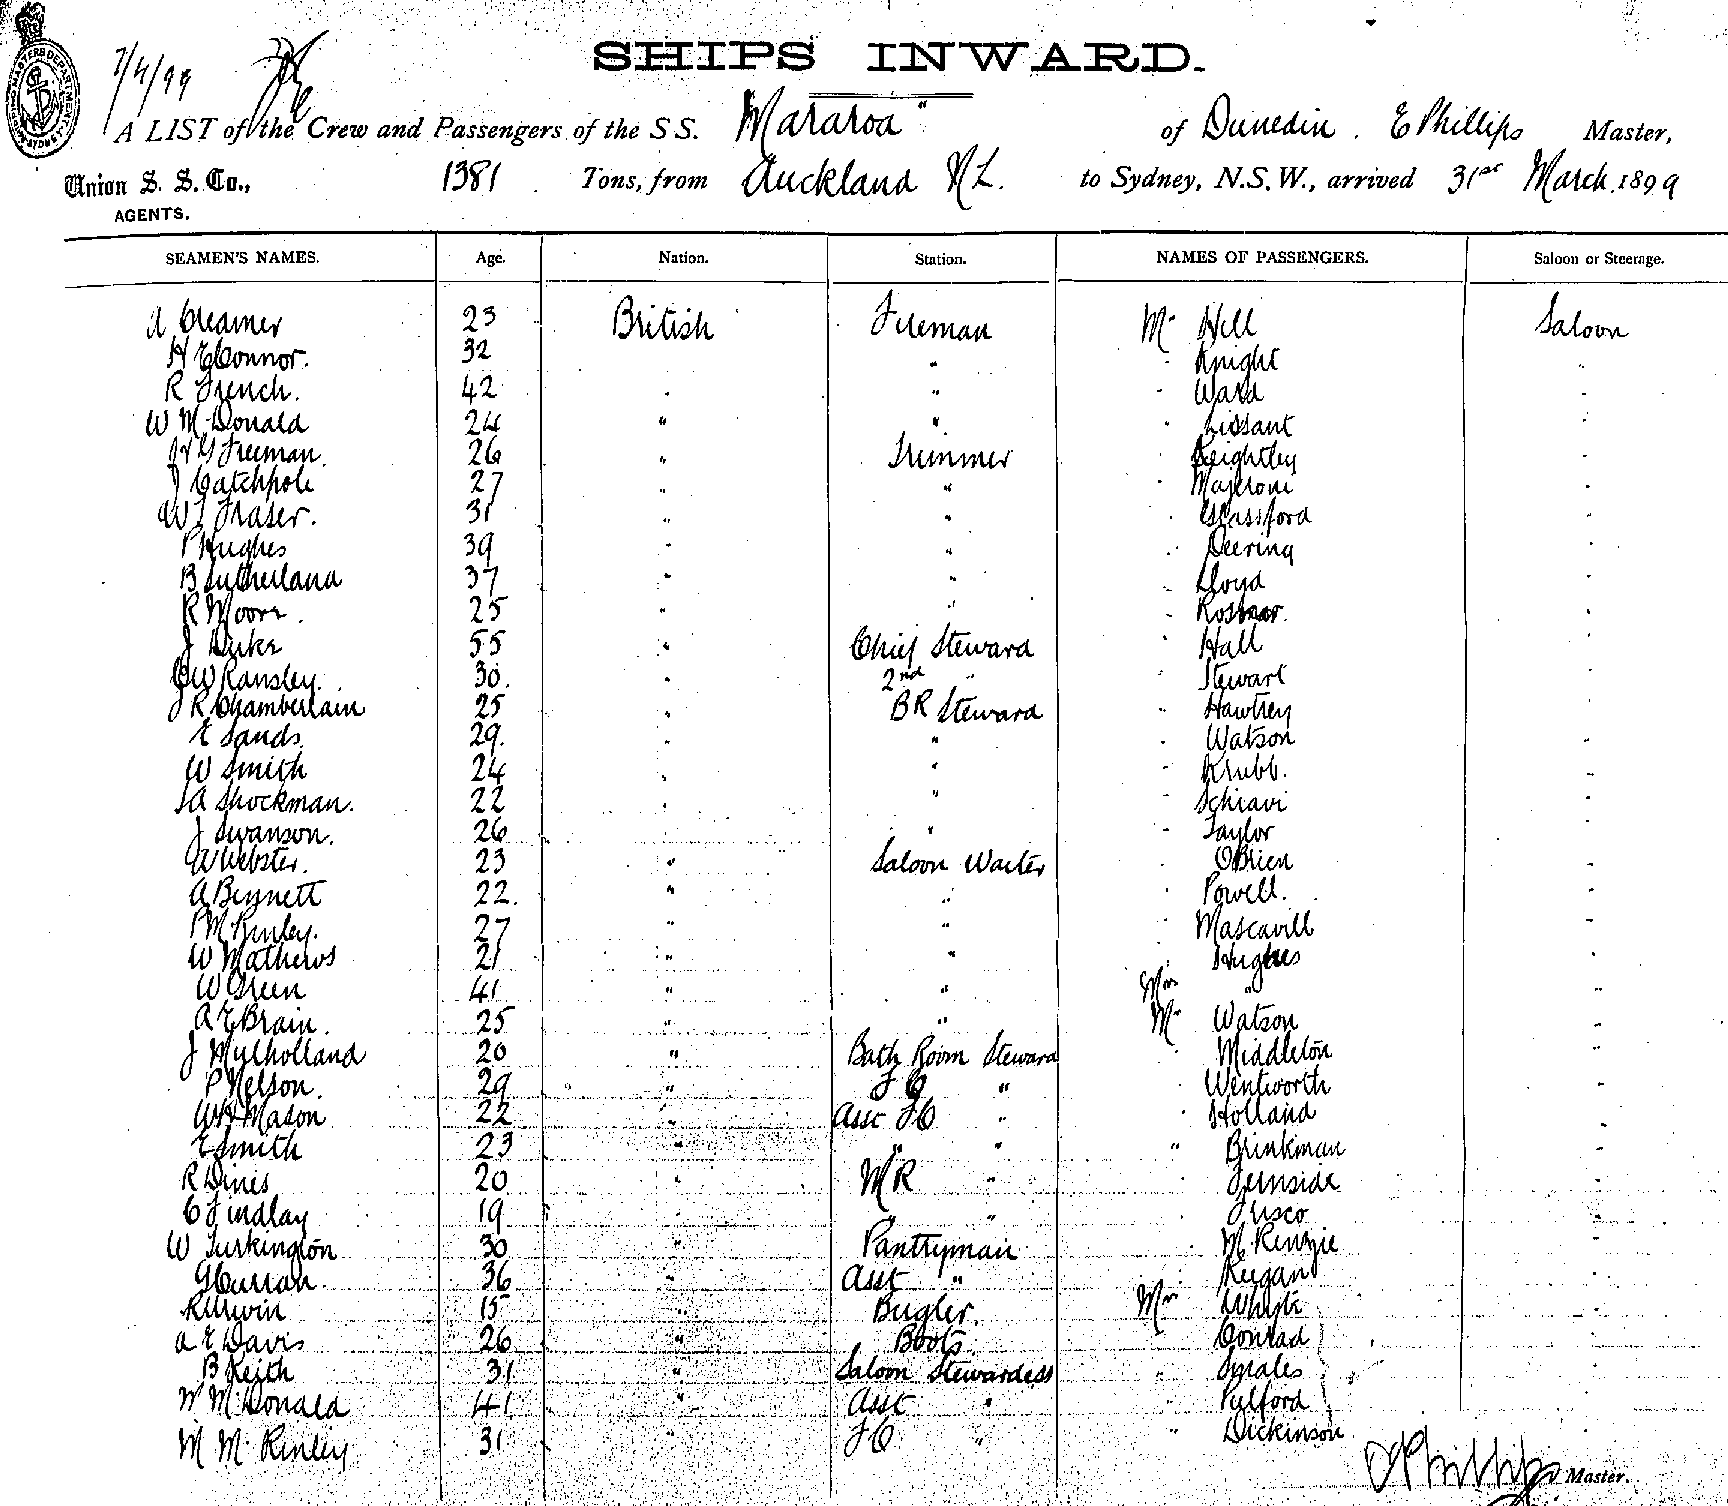 SHIPS INWARD.
7/4/99
A LIST of the Crew and Passengers of the S S. "Mararoa" of Dunedin. E Phillips Master,
Union S. S. Co., 1381 Tons, from Auckland N Z. to Sydney, N.S.W., arrived 31st March 1899
AGENTS.
SEAMEN'S NAMES. Age. Nation. Station. NAMES OF PASSENGERS. Saloon or Steerage.
A Creamer 23 British Fireman Mr Hill Saloon
H E Connor. 32 " " Knight "
R French. 42 " " Ward "
W McDonald 24 " "
Freeman. 26 " Trimmer Keightley "
J Catchpole 27 " " Majeroni "
W J Fraser. 31 " " Glassford "
P Hughes 39 " " Deering "
B Sutherland 37 " " Lloyd "
R Moore. 25 " "
J Duke 55 " Chief Steward " Hall "
C W Ransley. 30. " 2nd " " Stewart "
J R Chamberlain 25 " B R Steward " Hawtrey "
E Sands. 29. " " " Watson "
W Smith 24 " " "
A Shockman. 22 " " " Schiavi "
J Swanson. 26 " " Taylor "
W Webster. 23 " Saloon Waiter " OBrien "
A Bennett 22. " " " Powell. "
P McKinley. 27 " " " Mascavill "
W Mathews 21 " " " Hughes "
W Green 41 " " Mrs " "
A E Brain. 25 " " Mr Watson "
J Mulholland 20 " Bath Room Steward " Middleton "
P Nelson. 29 " F C " " Wentworth "
Mason 22 " Asst F C " " Holland "
E Smith 23 " " " " Brinkman "
R Dines 20 " M R " " Fernside "
C Findlay 19 " " " Fusco "
W Turkington 30 " Pantryman " McKenzie "
G Curran. 36 " Asst " " Keegan "
R Urwin 15 " Bugler. Mrs Whyte "
A E Davis 26 " Boots. " Conrad "
B Keith 31 " Saloon Stewardess " Smales "
M McDonald 41 " Asst " " Pulford "
M McKinley 31 " F C " " Dickinson "
E Phillips Master.